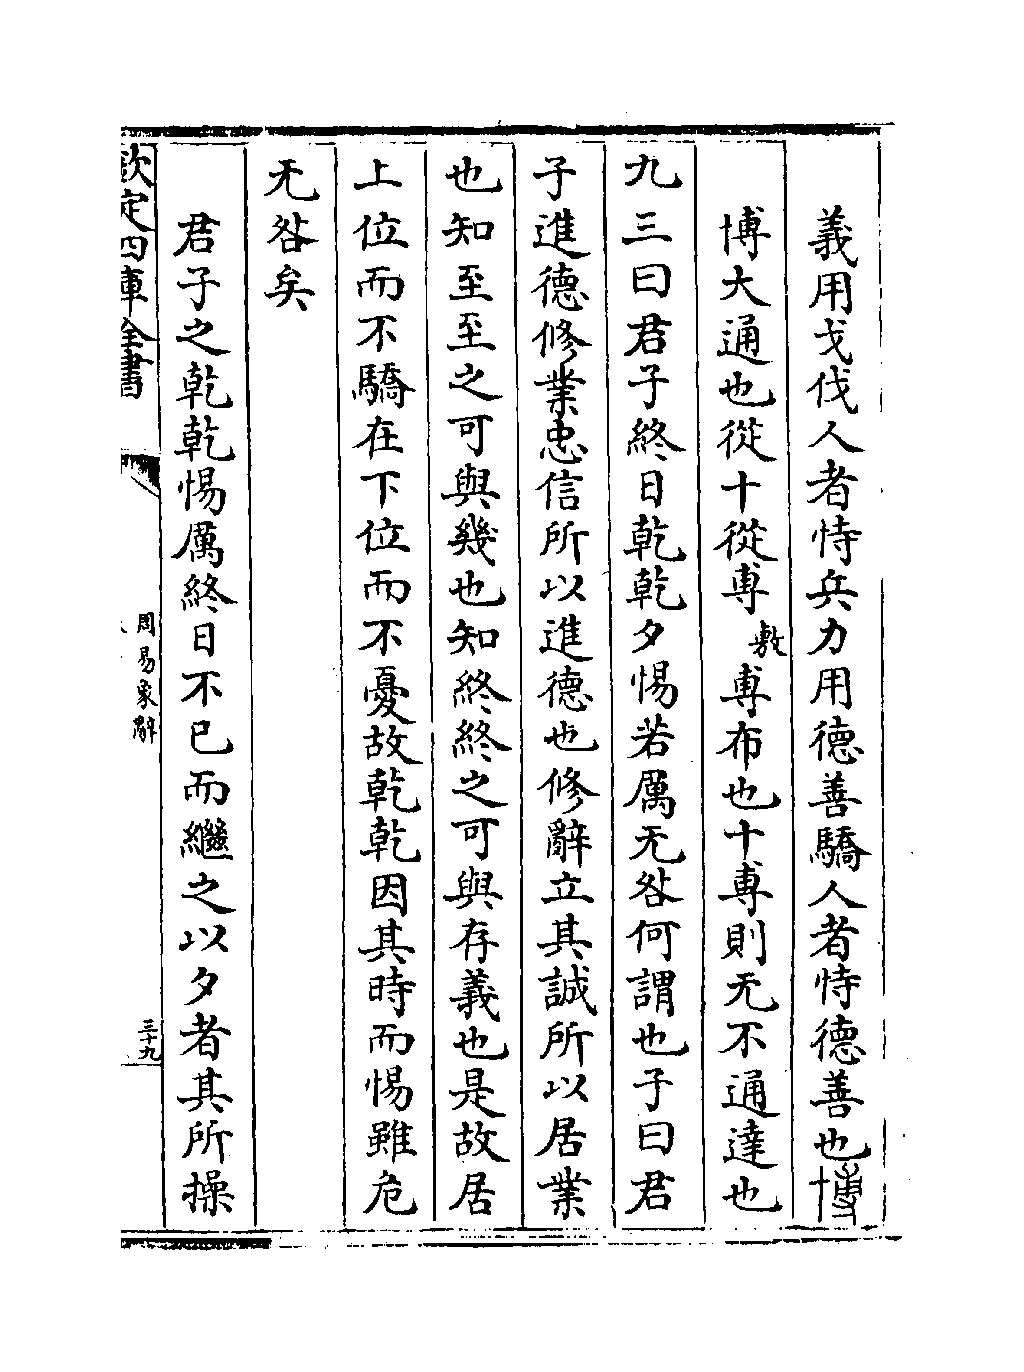 義用戈伐人者恃兵力用德善驕人者恃德善也博
博大通也從十從尃敷尃布也十尃則无不通達也
九三曰君子終日乾乾夕惕若厲无咎何謂也子曰君
子進德修業忠信所以進德也修辭立其誠所以居業
也知至至之可與幾也知終終之可與存義也是故居
上位而不驕在下位而不憂故乾乾因其時而惕雖危
无咎矣
君子之乾乾惕厲終日不已而繼之以夕者其所操
欽定四庫全書
周易象辭
三十九